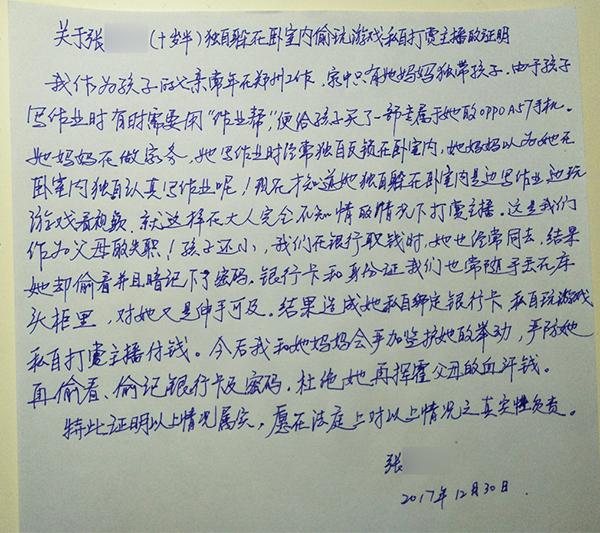 关于张 (十岁半)独自躲在卧室内偷玩游戏私自打赏主播的证明
我作为孩子的父亲常年在郑州工作，家中只有她妈妈独带孩子，由于孩子
写作业时有时需要用“作业帮”便给孩子买了一部专属于她的OPPOA57手机。
她妈妈在做家务，她写作业时经常独自反锁在卧室内，她妈妈以为她在
卧室内独自认真写作业呢！现在才知道她独自躲在卧室内是边写作业边玩
游戏看视频，就这样在大人完全不知情的情况下打赏主播。这是我们
作为父母的失职！孩子还小，我们在银行取钱时，她也经常同去，结果
她却偷看并且暗记下了密码。银行卡和身份证我们也常随手丢在床
头柜里，对她又是伸手可及。结果造成她私自绑定银行卡 私自玩游戏
私自打赏主播付钱。今后我和她妈妈会严加监护她的举动，严防她
再偷看、偷记银行卡及密码，杜绝她再挥霍父母的血汗钱。
特此证明以上情况属实，愿在法庭上对以上情况之真实性负责。
张
2017年12月30日.